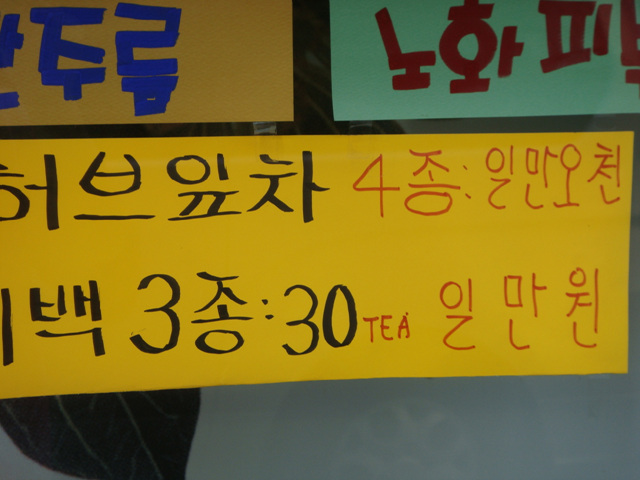 잔주름 노화피부
허브잎차 4종: 일만오천
티백 3종: 30 TEA 일만원